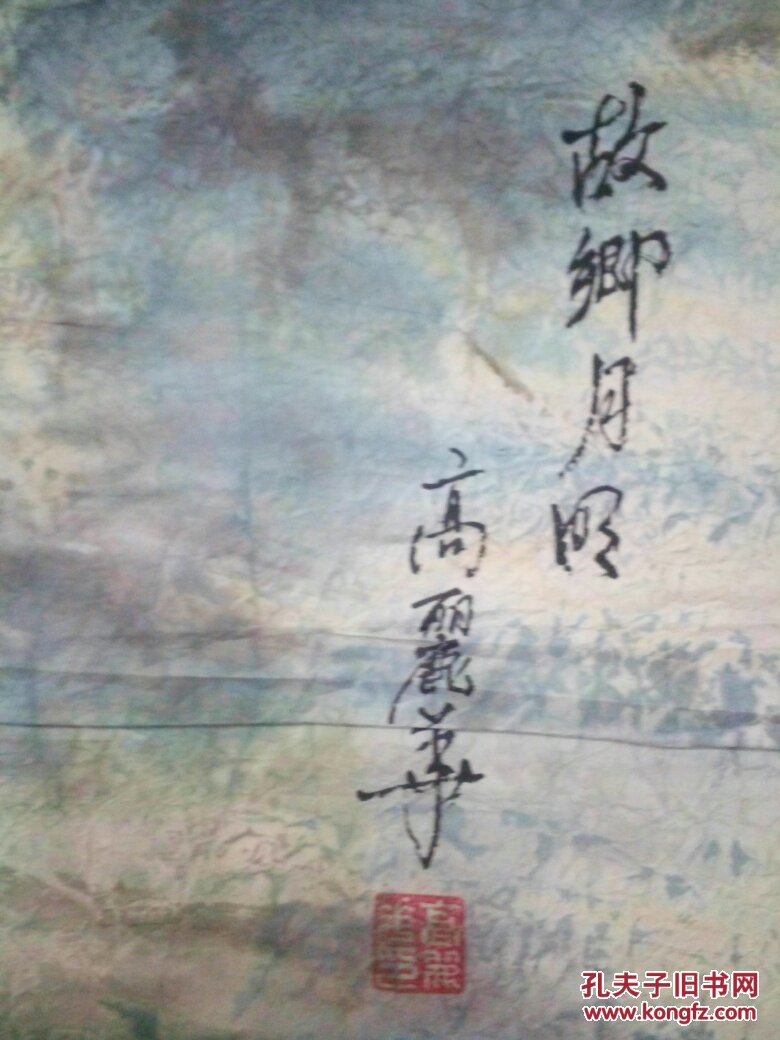 故鄉月明
高麗華
孔夫子旧书网
www.kongfz.com